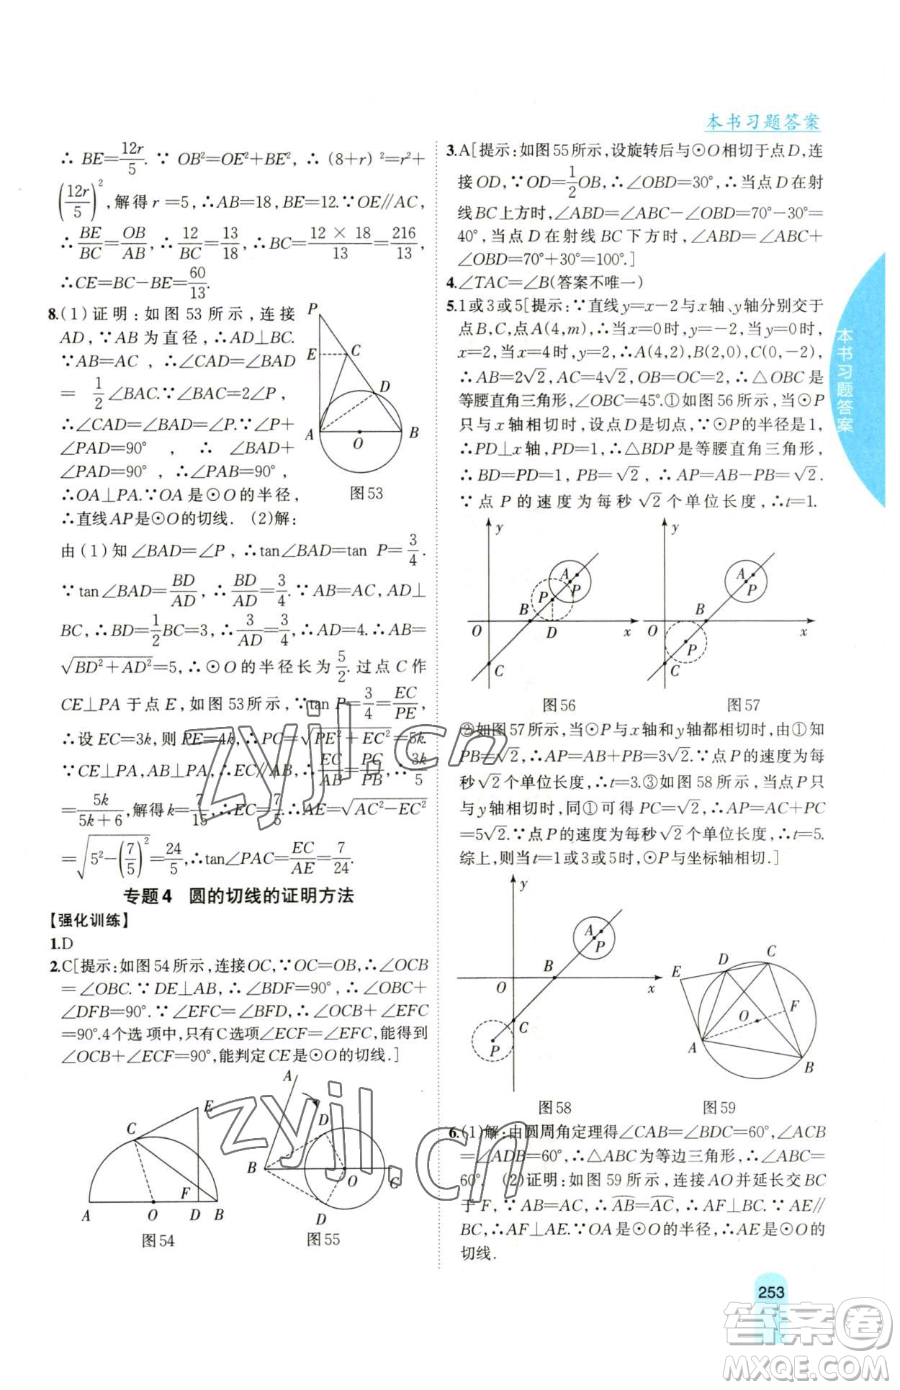 本书习题答案
∴ BE=12r/5. ∵ OB²=OE²+BE², ∴ (8+r)²=r²+
(12r/5)², 解得 r=5, ∴AB=18, BE=12. ∵OE∥AC,
∴ BE/BC=OB/AB, ∴ 12/BC=13/18, ∴BC=12×18/13=216/13,
∴CE=BC−BE=60/13.
8.(1)证明:如图53所示,连接
AD, ∵AB为直径, ∴AD⊥BC.
∵AB=AC, ∴∠CAD=∠BAD
=1/2∠BAC. ∵∠BAC=2∠P,
∴∠CAD=∠BAD=∠P, ∴
∠PAD=90°, ∴∠CAD+
∠PAD=90°, ∴∠PAO=90°,
∴OA⊥PA. ∵OA是⊙O的半径,
∴直线AP是⊙O的切线. (2)解:
P
E
C
D
A
O
B
图53
由(1)知∠BAD=∠P, ∴tan∠BAD=tan P=3/4.
∵tan∠BAD=BD/AD, ∴BD/AD=3/4. ∵AB=AC, AD⊥
BC, ∴BD=1/2BC=3, ∴3/AD=3/4, ∴AD=4, ∴AB=
√(BD²+AD²)=5, ∴⊙O的半径长为5/2. 过点C作
CE⊥PA于点E, 如图53所示, ∵tan P=3/4=EC/PE,
∴设EC=3k, 则PE=4k, ∴PC=√(PE²+EC²)=5k.
∵CE⊥PA, AB⊥PA, ∴CE∥AB, ∴EC/AB=PC/PB, ∴3k/5
=5k/(5k+6), 解得k=7/15, ∴EC=7/5, ∴AE=√(AC²−EC²)
=√(5²−(7/5)²)=24/5, ∴tan∠PAC=EC/AE=7/24.
专题4 圆的切线的证明方法
【强化训练】
1.D
2.C[提示:如图54所示,连接OC, ∵OC=OB, ∴∠OCB
=∠OBC. ∵DE⊥AB, ∴∠BDF=90°, ∴∠OBC+
∠DFB=90°. ∵∠EFC=∠BFD, ∴∠OCB+∠EFC=
90°.4个选项中,只有C选项∠ECF=∠EFC,能得到
∠OCB+∠ECF=90°,能判定CE是⊙O的切线.]
E
C
F
A
O
D
B
图54
A
D
B
O
C
D
图55
3.A[提示:如图55所示,设旋转后与⊙O相切于点D,连
接OD, ∵OD=1/2OB, ∴∠OBD=30°, ∴当点D在射
线BC上方时, ∠ABD=∠ABC−∠OBD=70°−30°=
40°, 当点D在射线BC下方时, ∠ABD=∠ABC+
∠OBD=70°+30°=100°.]
4.∠TAC=∠B(答案不唯一)
5.1或3或5[提示: ∵直线y=x−2与x轴、y轴分别交于
点B,C,点A(4,m), ∴当x=0时, y=−2, 当y=0时, x
=2, 当x=4时, y=2, ∴A(4,2), B(2,0), C(0,−2), ∴
∴AB=2√2, AC=4√2, OB=OC=2, ∴△OBC是
等腰直角三角形, ∠OBC=45°. ①如图56所示, 当⊙P
只与x轴相切时, 设点D是切点, ∵⊙P的半径是1,
∴PD⊥x轴, PD=1, ∴△BDP是等腰直角三角形,
∴BD=PD=1, PB=√2, ∴AP=AB−PB=√2.
∵点P的速度为每秒√2个单位长度, ∴t=1.
y
A
P
P
B
O
D
x
C
图56
y
A
P
B
O
P
x
C
图57
②如图57所示, 当⊙P与x轴和y轴都相切时, 由①知
PB=√2, ∴AP=AB+PB=3√2. ∵点P的速度为
每秒√2个单位长度, ∴t=3. ③如图58所示, 当点P只
与y轴相切时, 同①可得PC=√2, ∴AP=AC+PC
=5√2. ∵点P的速度为每秒√2个单位长度, ∴t=5.
综上,则当t=1或3或5时, ⊙P与坐标轴相切.]
y
A
P
B
O
x
C
P
图58
D
C
E
F
O
A
B
图59
6.(1)解:由圆周角定理得∠CAB=∠BDC=60°, ∠ACB
=∠ADB=60°, ∴△ABC为等边三角形, ∴∠ABC=
60°. (2)证明:如图59所示,连接AO并延长交BC
于F, ∵AB=AC, ∴AB=AC, ∴AF⊥BC. ∵AE∥
BC, ∴AF⊥AE. ∵OA是⊙O的半径, ∴AE是⊙O的
切线.
本书习题答案
253
zyjl.cn
zyjl.cn
答案圈
MXQE.COM